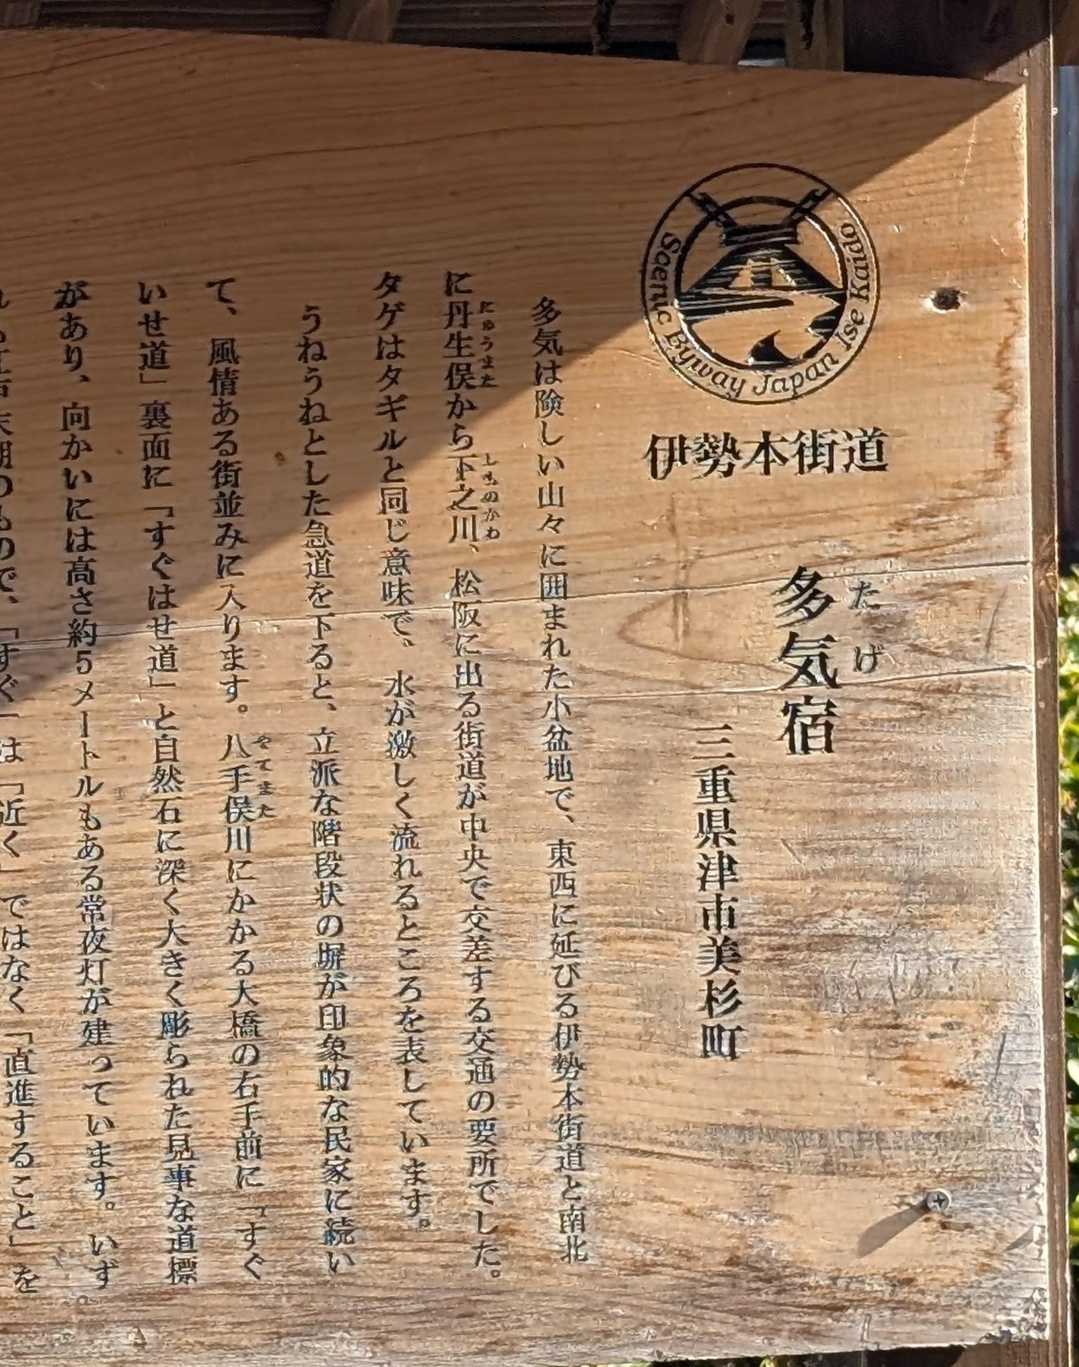 Scenic Byway Japan Ise Kaido
伊勢本街道
たげ
多気宿
三重県津市美杉町
多気は険しい山々に囲まれた小盆地で、東西に延びる伊勢本街道と南北
にゅうまた
しものかわ
に丹生俣から下之川、松阪に出る街道が中央で交差する交通の要所でした。
タゲはタギルと同じ意味で、水が激しく流れるところを表しています。
うねうねとした急道を下ると、立派な階段状の塀が印象的な民家に続い
やてまた
て、風情ある街並みに入ります。八手俣川にかかる大橋の右手前に「すぐ
いせ道」裏面に「すぐはせ道」と自然石に深く大きく彫られた見事な道標
があり、向かいには高さ約5メートルもある常夜灯が建っています。いず
のもので、「すぐ」は「近く」ではなく「直進すること」を